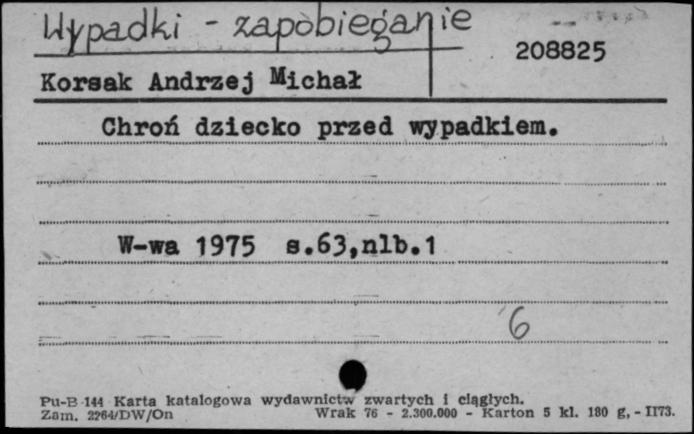 Wypadki - zapobieganie
208825
Korsak Andrzej Michał
Chroń dziecko przed wypadkiem.
W-wa 1975 s.63,nlb.1
6
Pu-B 144 Karta katalogowa wydawnictw zwartych i ciągłych.
Zam. 2264/DW/On Wrak 76 - 2.300.000 - Karton 5 kl. 180 g, - II73.